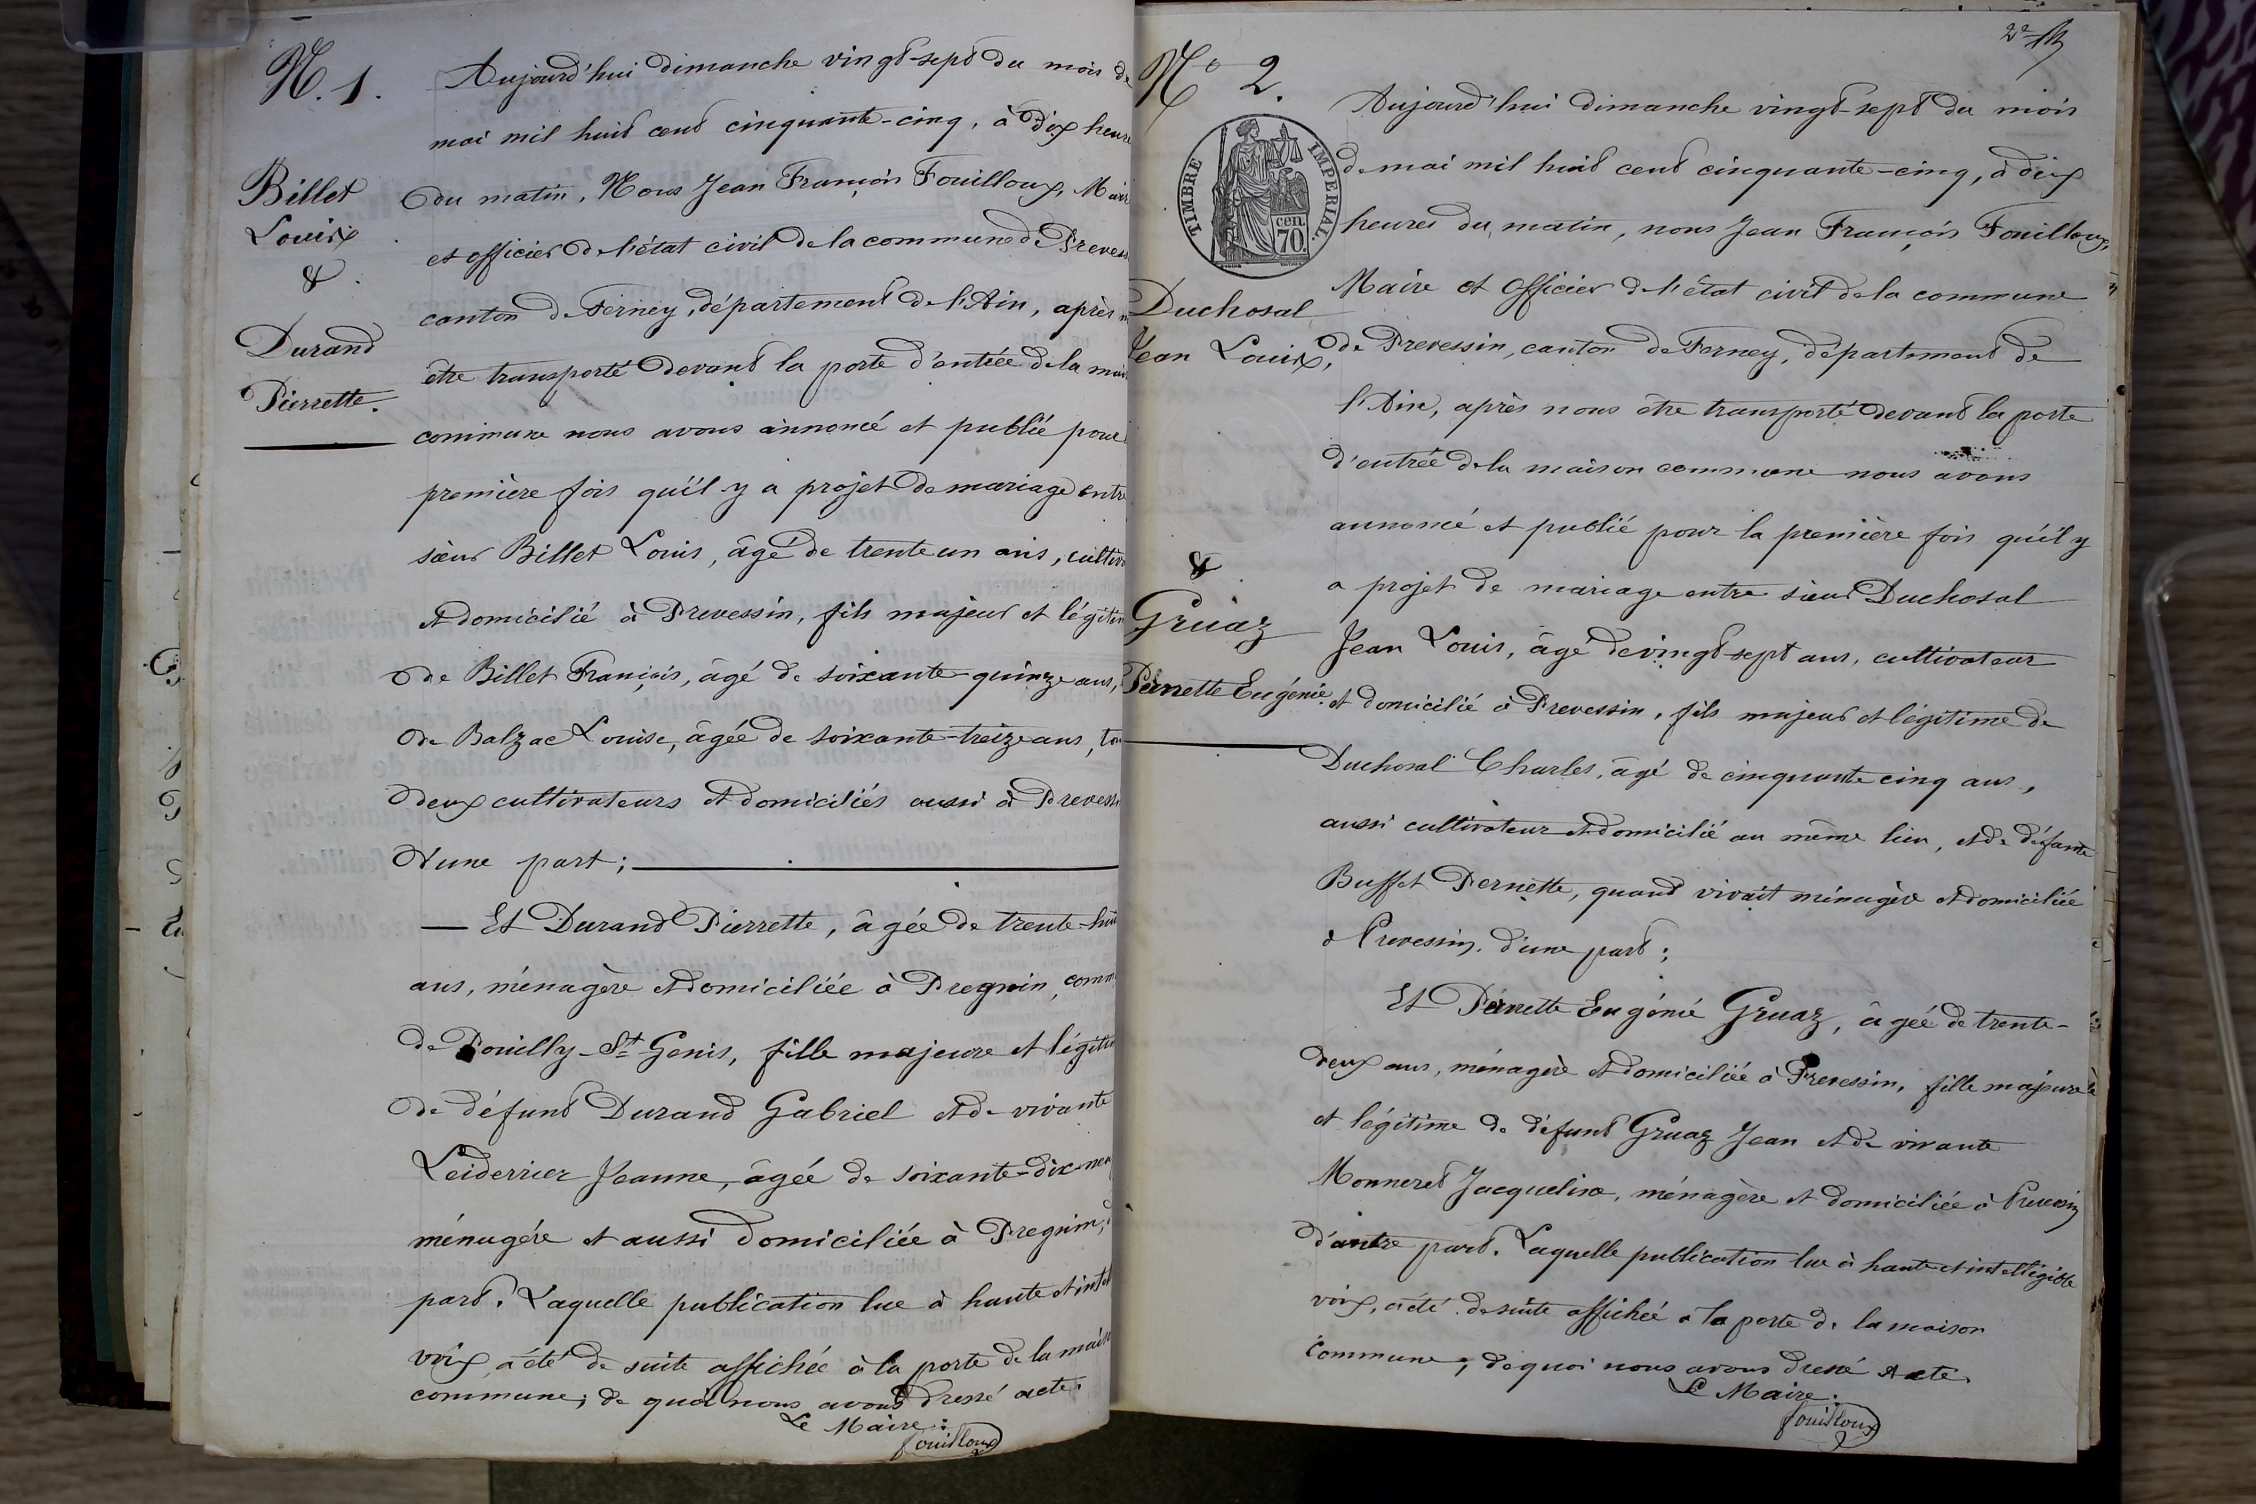 N. 1.
Billet
Louis
&
Durand
Pierrette.
Aujourd'hui dimanche vingt-sept du mois de
mai mil huit cent cinquante-cinq, à dix heure
du matin, Nous Jean François Fouilloux, Mair
et officier de l'état civil de la commune de Preves
canton de Ferney, département de l'Ain, après
être transporté devant la porte d'entrée de la mai
commune nous avons annoncé et publié pour
première fois qu'il y a projet de mariage entre
sieur Billet Louis, âgé de trente un ans, cultiv
et domicilié à Prevessin, fils majeur et légitim
de Billet François, âgé de soixante-quinze ans,
de Balzac Louise, âgée de soixante-treize ans, tou
deux cultivateurs et domiciliés aussi à Prevess
d'une part;
— Et Durand Pierrette, âgée de trente-hui
ans, ménagère et domiciliée à Pregnin, comm
de Pouilly-St Genis, fille majeure et légitim
de défunt Durand Gabriel et de vivante
Leiderrier Jeanne, âgée de soixante-dix-neu
ménagère et aussi domiciliée à Pregnin, d
part. Laquelle publication lue à haute et intel
voix, a été de suite affichée à la porte de la maiso
commune; de quoi nous avons dressé acte.
Le Maire:
Fouilloux
2e
No 2.
TIMBRE IMPERIAL.
cen.
70.
Duchosal
Jean Louis,
&
Gruaz
Pernette Eugénie.
Aujourd'hui dimanche vingt-sept du mois
de mai mil huit cent cinquante-cinq, à dix
heures du matin, nous Jean François Fouilloux,
Maire et officier de l'état civil de la commune
de Prevessin, canton de Ferney, département de
l'Ain, après nous être transporté devant la porte
d'entrée de la maison commune nous avons
annoncé et publié pour la première fois qu'il y
a projet de mariage entre sieur Duchosal
Jean Louis, âgé de vingt-sept ans, cultivateur
et domicilié à Prevessin, fils majeur et légitime de
Duchosal Charles, âgé de cinquante cinq ans,
aussi cultivateur et domicilié au même lieu, et de défunte
Buffet Pernette, quand vivait ménagère et domiciliée
à Prevessin, d'une part;
Et Pernette Eugénie Gruaz, âgée de trente-
deux ans, ménagère et domiciliée à Prevessin, fille majeure
et légitime de défunt Gruaz Jean et de vivante
Monneret Jacqueline, ménagère et domiciliée à Prevessin
d'autre part. Laquelle publication lue à haute et intelligible
voix, a été de suite affichée à la porte de la maison
commune, de quoi nous avons dressé acte.
Le Maire:
Fouilloux